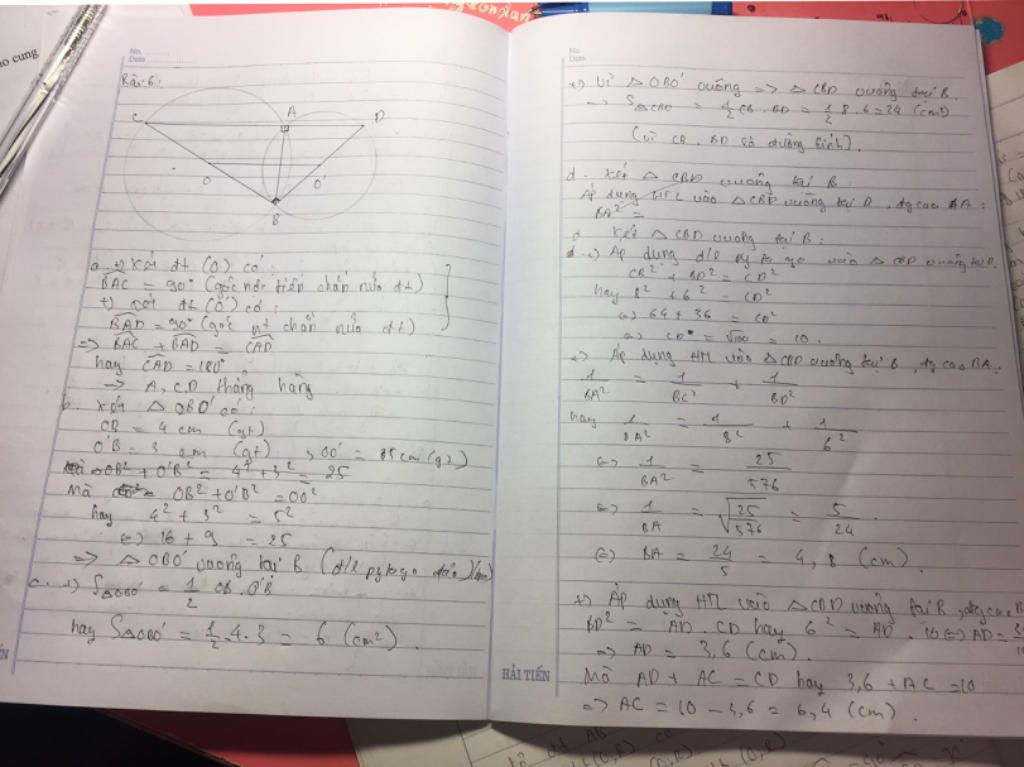 ao cung
No.
Date
Bài 6:
C A D
O O'
B
a. +) Xét đt (O) có:
BAC = 90° (góc nội tiếp chắn nửa đt)
+) xét đt (O') có:
BAD = 90° (góc nt chắn nửa đt)
=> BAC + BAD = CAD
hay CAD = 180°
-> A, C, D thẳng hàng
b. xét △ OBO' có:
OB = 4 cm (gt)
O'B = 3 cm (gt) , OO' = 5 cm (gt)
OB² + O'B² = 4² + 3² = 25
Mà OB² + O'B² = OO'²
hay 4² + 3² = 5²
<=> 16 + 9 = 25
=> △ OBO' vuông tại B. (đ/l pytago đảo)
c. +) S△OBO' = 1/2 OB . O'B
hay S△OBO' = 1/2 . 4 . 3 = 6 (cm²).
No.
Date
+) Vì △ OBO' vuông => △ CBD vuông tại B.
=> S△CBD = 1/2 CB . BD = 1/2 8 . 6 = 24 (cm²)
(vì CB, BD là đường kính).
d. Xét △ CBD vuông tại B.
Áp dụng HTL vào △ CBD vuông tại B, đg cao BA:
BA² =
Xét △ CBD vuông tại B:
d. +) Áp dụng đ/l py ta go vào △ CBD vuông tại B.
CB² + BD² = CD²
hay 8² + 6² = CD²
<=> 64 + 36 = CD²
=> CD = √100 = 10.
+) Áp dụng HTL vào △ CBD vuông tại B, đg cao BA.
1/BA² = 1/BC² + 1/BD²
hay 1/BA² = 1/8² + 1/6²
<=> 1/BA² = 25/576
<=> 1/BA = √25/576 = 5/24.
<=> BA = 24/5 = 4,8 (cm).
+) Áp dụng HTL vào △ CBD vuông tại B, đg cao B
BD² = AD . CD hay 6² = AD . 10 <=> AD =
=> AD = 3,6 (cm).
Mà AD + AC = CD hay 3,6 + AC = 10
=> AC = 10 - 3,6 = 6,4 (cm).
HẢI TIẾN